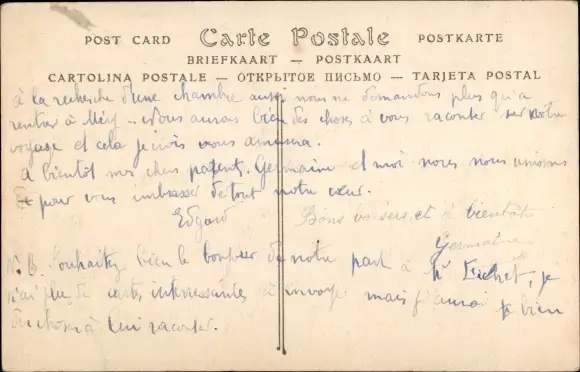 POST CARD Carte Postale POSTKARTE
BRIEFKAART — POSTKAART
CARTOLINA POSTALE — ОТКРЫТОЕ ПИСЬМО — TARJETA POSTAL
à la recherche d'une chambre aussi nous ne demandons plus qu'à
rentrer à - Nous aurons bien des choses à vous raconter sur notre
voyage et cela je crois vous amusera.
A bientôt mes chers parents. Germaine et moi nous nous unissons
pour vous embrasser de tout notre cœur.
Edgard Bons baisers et à bientôt
Germaine
N.B. Souhaitez bien le bonjour de notre part à Mr , je
n'ai plus de cartes intéressantes à envoyer mais j'aurai bien
des choses à lui raconter.